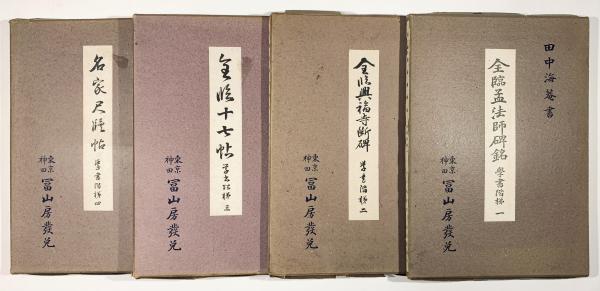 田中海菴書
全臨孟法師碑銘 學書階梯 一
全臨興福寺断碑 学書階梯 二
東京
神田 冨山房發兌
全臨十七帖 学書階梯 三
東京
神田 冨山房發兌
名家尺牘帖 学書階梯 四
東京
神田 冨山房發兌